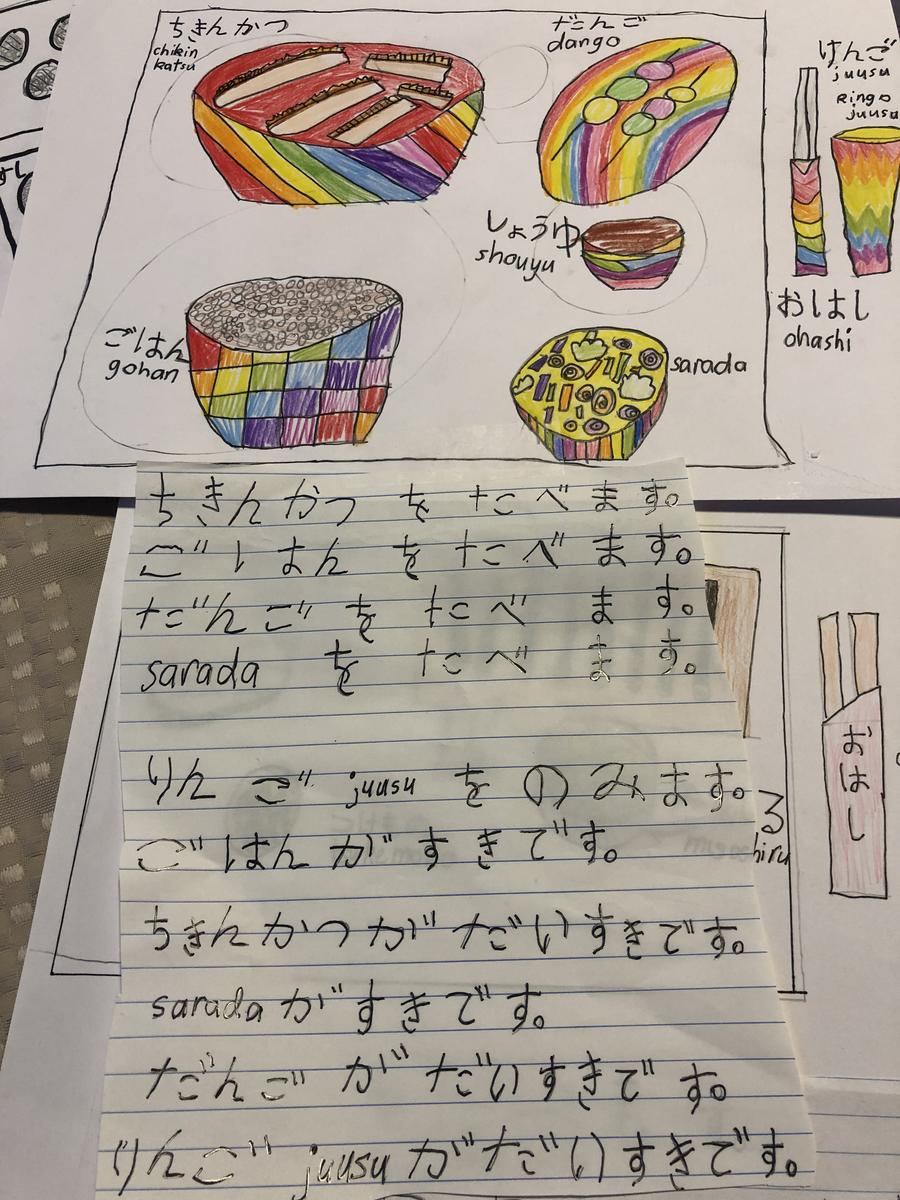 ちきんかつ
chikin
katsu
だんご
dango
りんご
juusu
Ringo
juusu
しょうゆ
shouyu
おはし
ohashi
ごはん
gohan
sarada
ちきん かつ を たべ ます。
ごはん を たべ ます。
だんご を たべ ます。
sarada を たべ ます。
りんご juusu を のみます。
ごはん が すきです。
ちきんかつ が だいすきです。
sarada が すきです。
だんご が だいすきです。
りんご juusu が だいすきです。
る
hiru
おはし